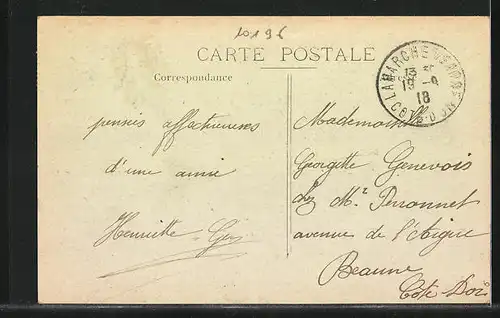 10196
CARTE POSTALE
Correspondance
pensées affectueuses
d'une amie
Henriette
LAMARCHE
CÔTE-D'OR
13
19 -9
18
Mademoiselle
Georgette Genevois
chez Mr Perronnet
avenue de l'Aigue
Beaune
Côte Dor